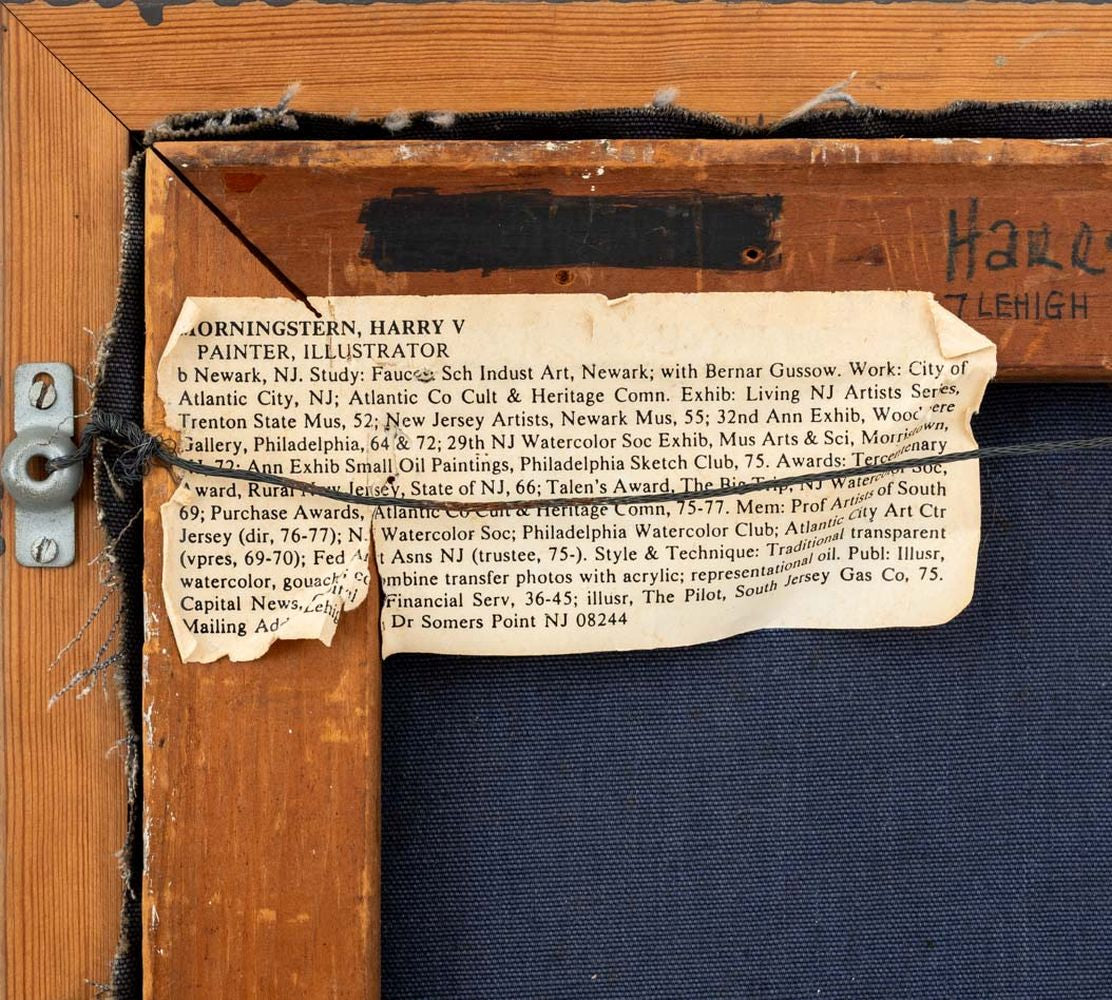 HARR
7 LEHIGH
MORNINGSTERN, HARRY V
PAINTER, ILLUSTRATOR
b Newark, NJ. Study: Faucet Sch Indust Art, Newark; with Bernar Gussow. Work: City of
Atlantic City, NJ; Atlantic Co Cult & Heritage Comn. Exhib: Living NJ Artists Series,
Trenton State Mus, 52; New Jersey Artists, Newark Mus, 55; 32nd Ann Exhib, Woodmere
Gallery, Philadelphia, 64 & 72; 29th NJ Watercolor Soc Exhib, Mus Arts & Sci, Morristown,
NJ, 72; Ann Exhib Small Oil Paintings, Philadelphia Sketch Club, 75. Awards: Tercentenary
Award, Rural New Jersey, State of NJ, 66; Talen's Award, The Big Trip, NJ Watercolor Soc,
69; Purchase Awards, Atlantic Co Cult & Heritage Comn, 75-77. Mem: Prof Artists of South
Jersey (dir, 76-77); N. Watercolor Soc; Philadelphia Watercolor Club; Atlantic City Art Ctr
(vpres, 69-70); Fed Art Asns NJ (trustee, 75-). Style & Technique: Traditional transparent
watercolor, gouache; combine transfer photos with acrylic; representational oil. Publ: Illusr,
Capital News, Financial Serv, 36-45; illusr, The Pilot, South Jersey Gas Co, 75.
Mailing Add Lehig Dr Somers Point NJ 08244